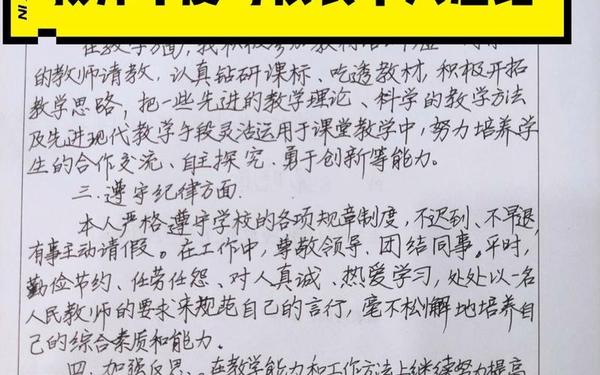 在教学方面，我积极参加教材
的教师请教，认真钻研课标、吃透教材，积极开拓
教学思路，把一些先进的教学理论、科学的教学方法
及先进现代教学手段灵活运用于课堂教学中，努力培养学
生的合作交流、自主探究、勇于创新等能力。
三.遵守纪律方面.
本人严格遵守学校的各项规章制度，不迟到、不早退，
有事主动请假。在工作中，尊敬领导、团结同事。平时，
勤俭节约、任劳任怨、对人真诚、热爱学习，处处以一名
人民教师的要求来规范自己的言行，毫不松懈地培养自
己的综合素质和能力。
四.加强反思。在教学能力和工作方法上继续努力提高